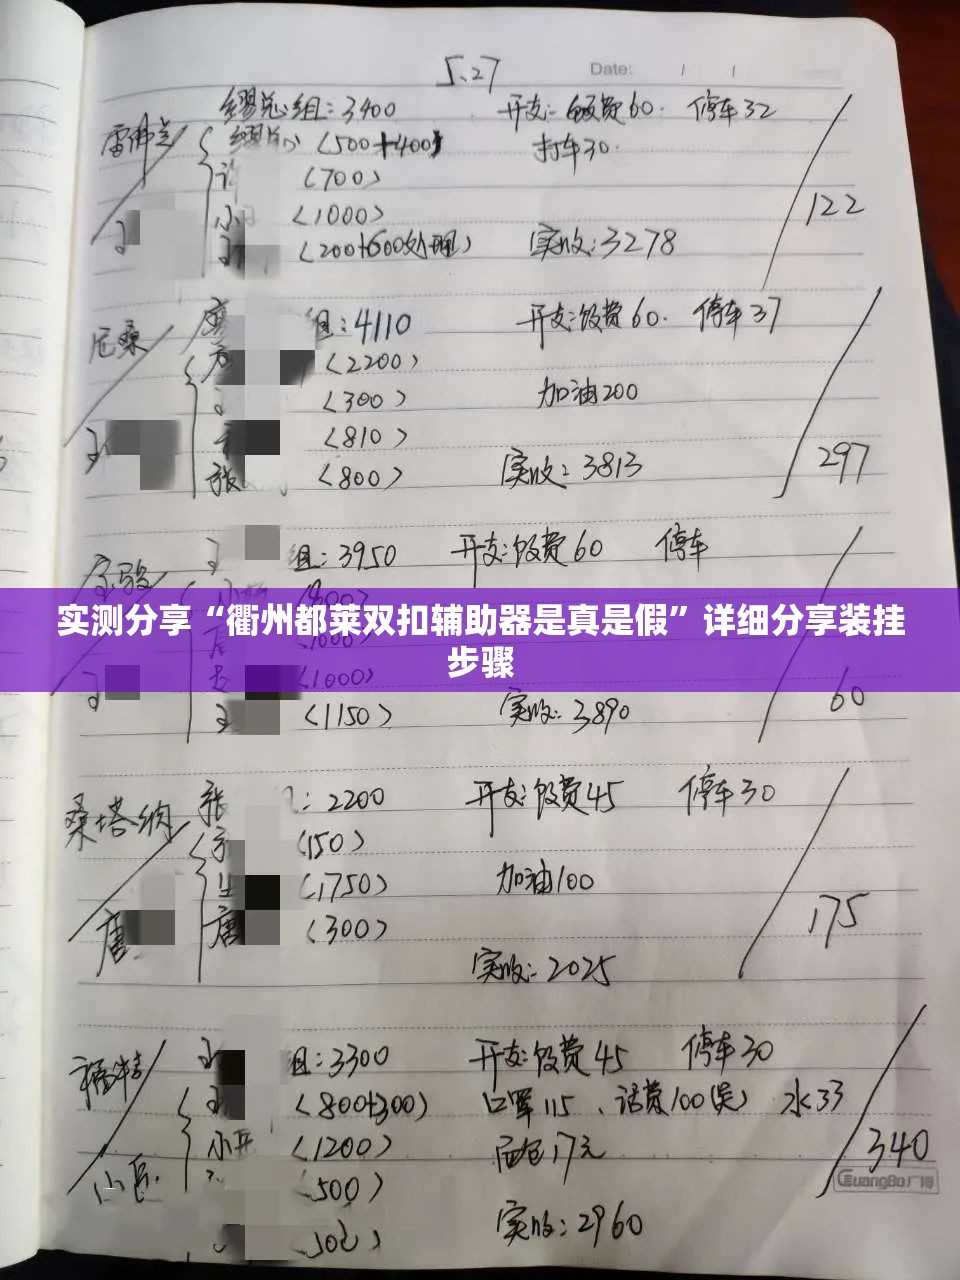 5.27
Date:
缪总组：3400 开支：饭费60. 停车32
雷沸兰
缪总（500+400） 打车30.
（700）
小（1000） 122
（200+600处理） 实收：3278
组：4110 开支：饭费60. 停车37
尼桑
（2200）
（300） 加油200
（810）
张（800） 实收：3813 297
组：3950 开支：饭费60 停车
实测分享“衢州都莱双扣辅助器是真是假”详细分享装挂
步骤
（1000）
（1150） 实收：3890 60
桑塔纳 张：2200 开支：饭费45 停车30
（150）
（1750） 加油100
唐 唐（300） 175
实收：2025
组：3300 开支：饭费45 停车30
（800+300） 口罩115、话费100（吴） 水33
小（1200） 17元 340
GuangBo广博
500）
实收：2960